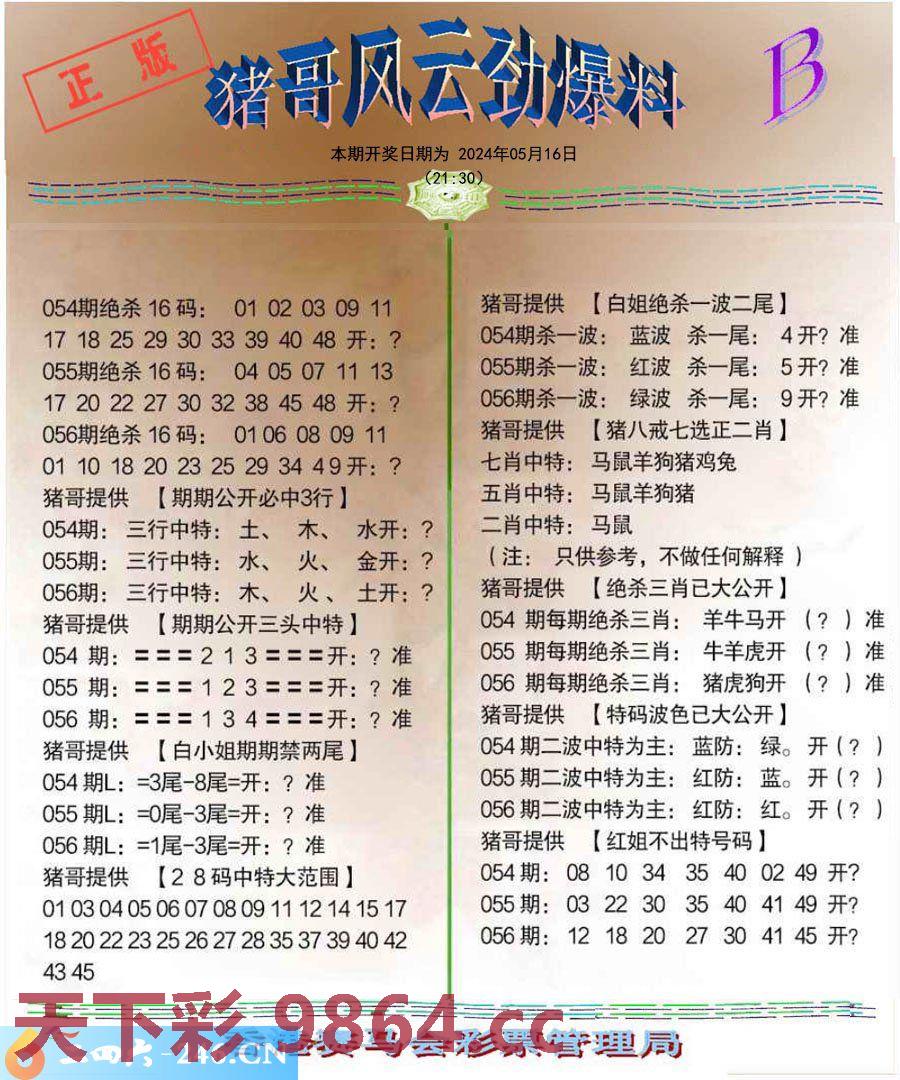 正版
猪哥风云劲爆料
B
本期开奖日期为 2024年05月16日
（21:30）
054期绝杀16码： 01 02 03 09 11
17 18 25 29 30 33 39 40 48 开：？
055期绝杀16码： 04 05 07 11 13
17 20 22 27 30 32 38 45 48 开：？
056期绝杀16码： 01 06 08 09 11
01 10 18 20 23 25 29 34 4 9 开：？
猪哥提供 【期期公开必中3行】
054期：三行中特：土、 木、 水开：？
055期：三行中特：水、 火、 金开：？
056期：三行中特：木、 火、 土开：？
猪哥提供 【期期公开三头中特】
054 期：〓〓〓2 1 3〓〓〓开：？准
055 期：〓〓〓1 2 3〓〓〓开：？准
056 期：〓〓〓1 3 4〓〓〓开：？准
猪哥提供 【白小姐期期禁两尾】
054期L：=3尾-8尾=开：？准
055期L：=0尾-3尾=开：？准
056期L：=1尾-3尾=开：？准
猪哥提供 【2 8码中特大范围】
01 03 04 05 06 07 08 09 11 12 14 15 17
18 20 22 23 25 26 27 28 35 37 39 40 42
43 45
猪哥提供 【白姐绝杀一波二尾】
054期杀一波： 蓝波 杀一尾： 4开？准
055期杀一波： 红波 杀一尾： 5开？准
056期杀一波： 绿波 杀一尾： 9开？准
猪哥提供 【猪八戒七选正二肖】
七肖中特：马鼠羊狗猪鸡兔
五肖中特：马鼠羊狗猪
二肖中特：马鼠
（注： 只供参考，不做任何解释）
猪哥提供 【绝杀三肖已大公开】
054 期每期绝杀三肖： 羊牛马开 （？）准
055 期每期绝杀三肖： 牛羊虎开 （？）准
056 期每期绝杀三肖： 猪虎狗开 （？）准
猪哥提供 【特码波色已大公开】
054期二波中特为主：蓝防：绿。开（？）
055期二波中特为主：红防：蓝。开（？）
056期二波中特为主：红防：红。开（？）
猪哥提供 【红姐不出特号码】
054期：08 10 34 35 40 02 49 开？
055期：03 22 30 35 40 41 49 开？
056期：12 18 20 27 30 41 45 开？
天下彩 9864.cc
二四六-246.CN
马会彩票管理局